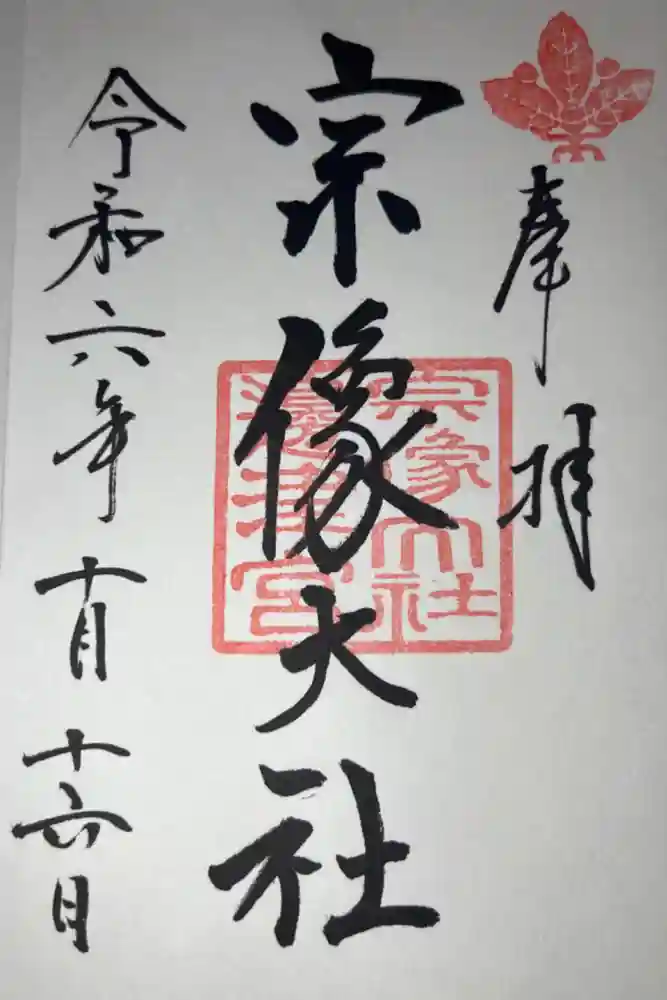 奉拝
宗像大社
宗像大社
邊津宮
令和六年十月十六日